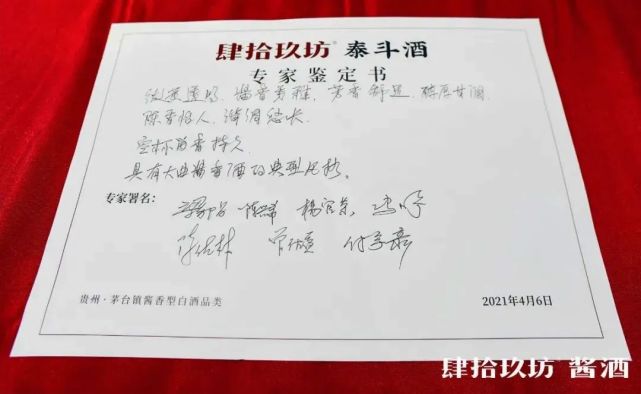 肆拾玖坊 泰斗酒
专家鉴定书
微黄透明，酱香秀雅，芳香舒适，醇厚甘润
陈香怡人，滋润悠长
空杯留香持久
具有大曲酱香酒的典型风格。
专家署名：
贵州·茅台镇酱香型白酒品类
2021年4月6日
肆拾玖坊 酱酒